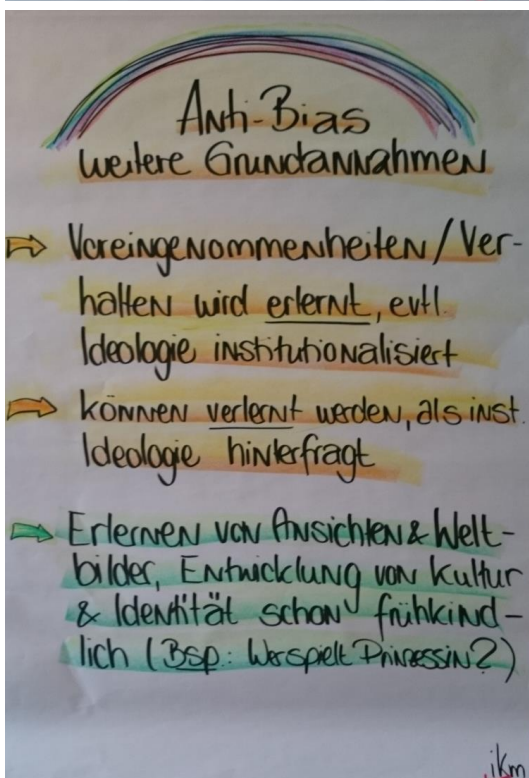 Anti-Bias
weitere Grundannahmen
Voreingenommenheiten/Ver-
halten wird erlernt, evtl.
Ideologie institutionalisiert
können verlernt werden, als inst.
Ideologie hinterfragt
Erlernen von Ansichten & Welt-
bilder, Entwicklung von Kultur
& Identität schon frühkind-
lich (Bsp.: Wer spielt Prinzessin?)
ikm